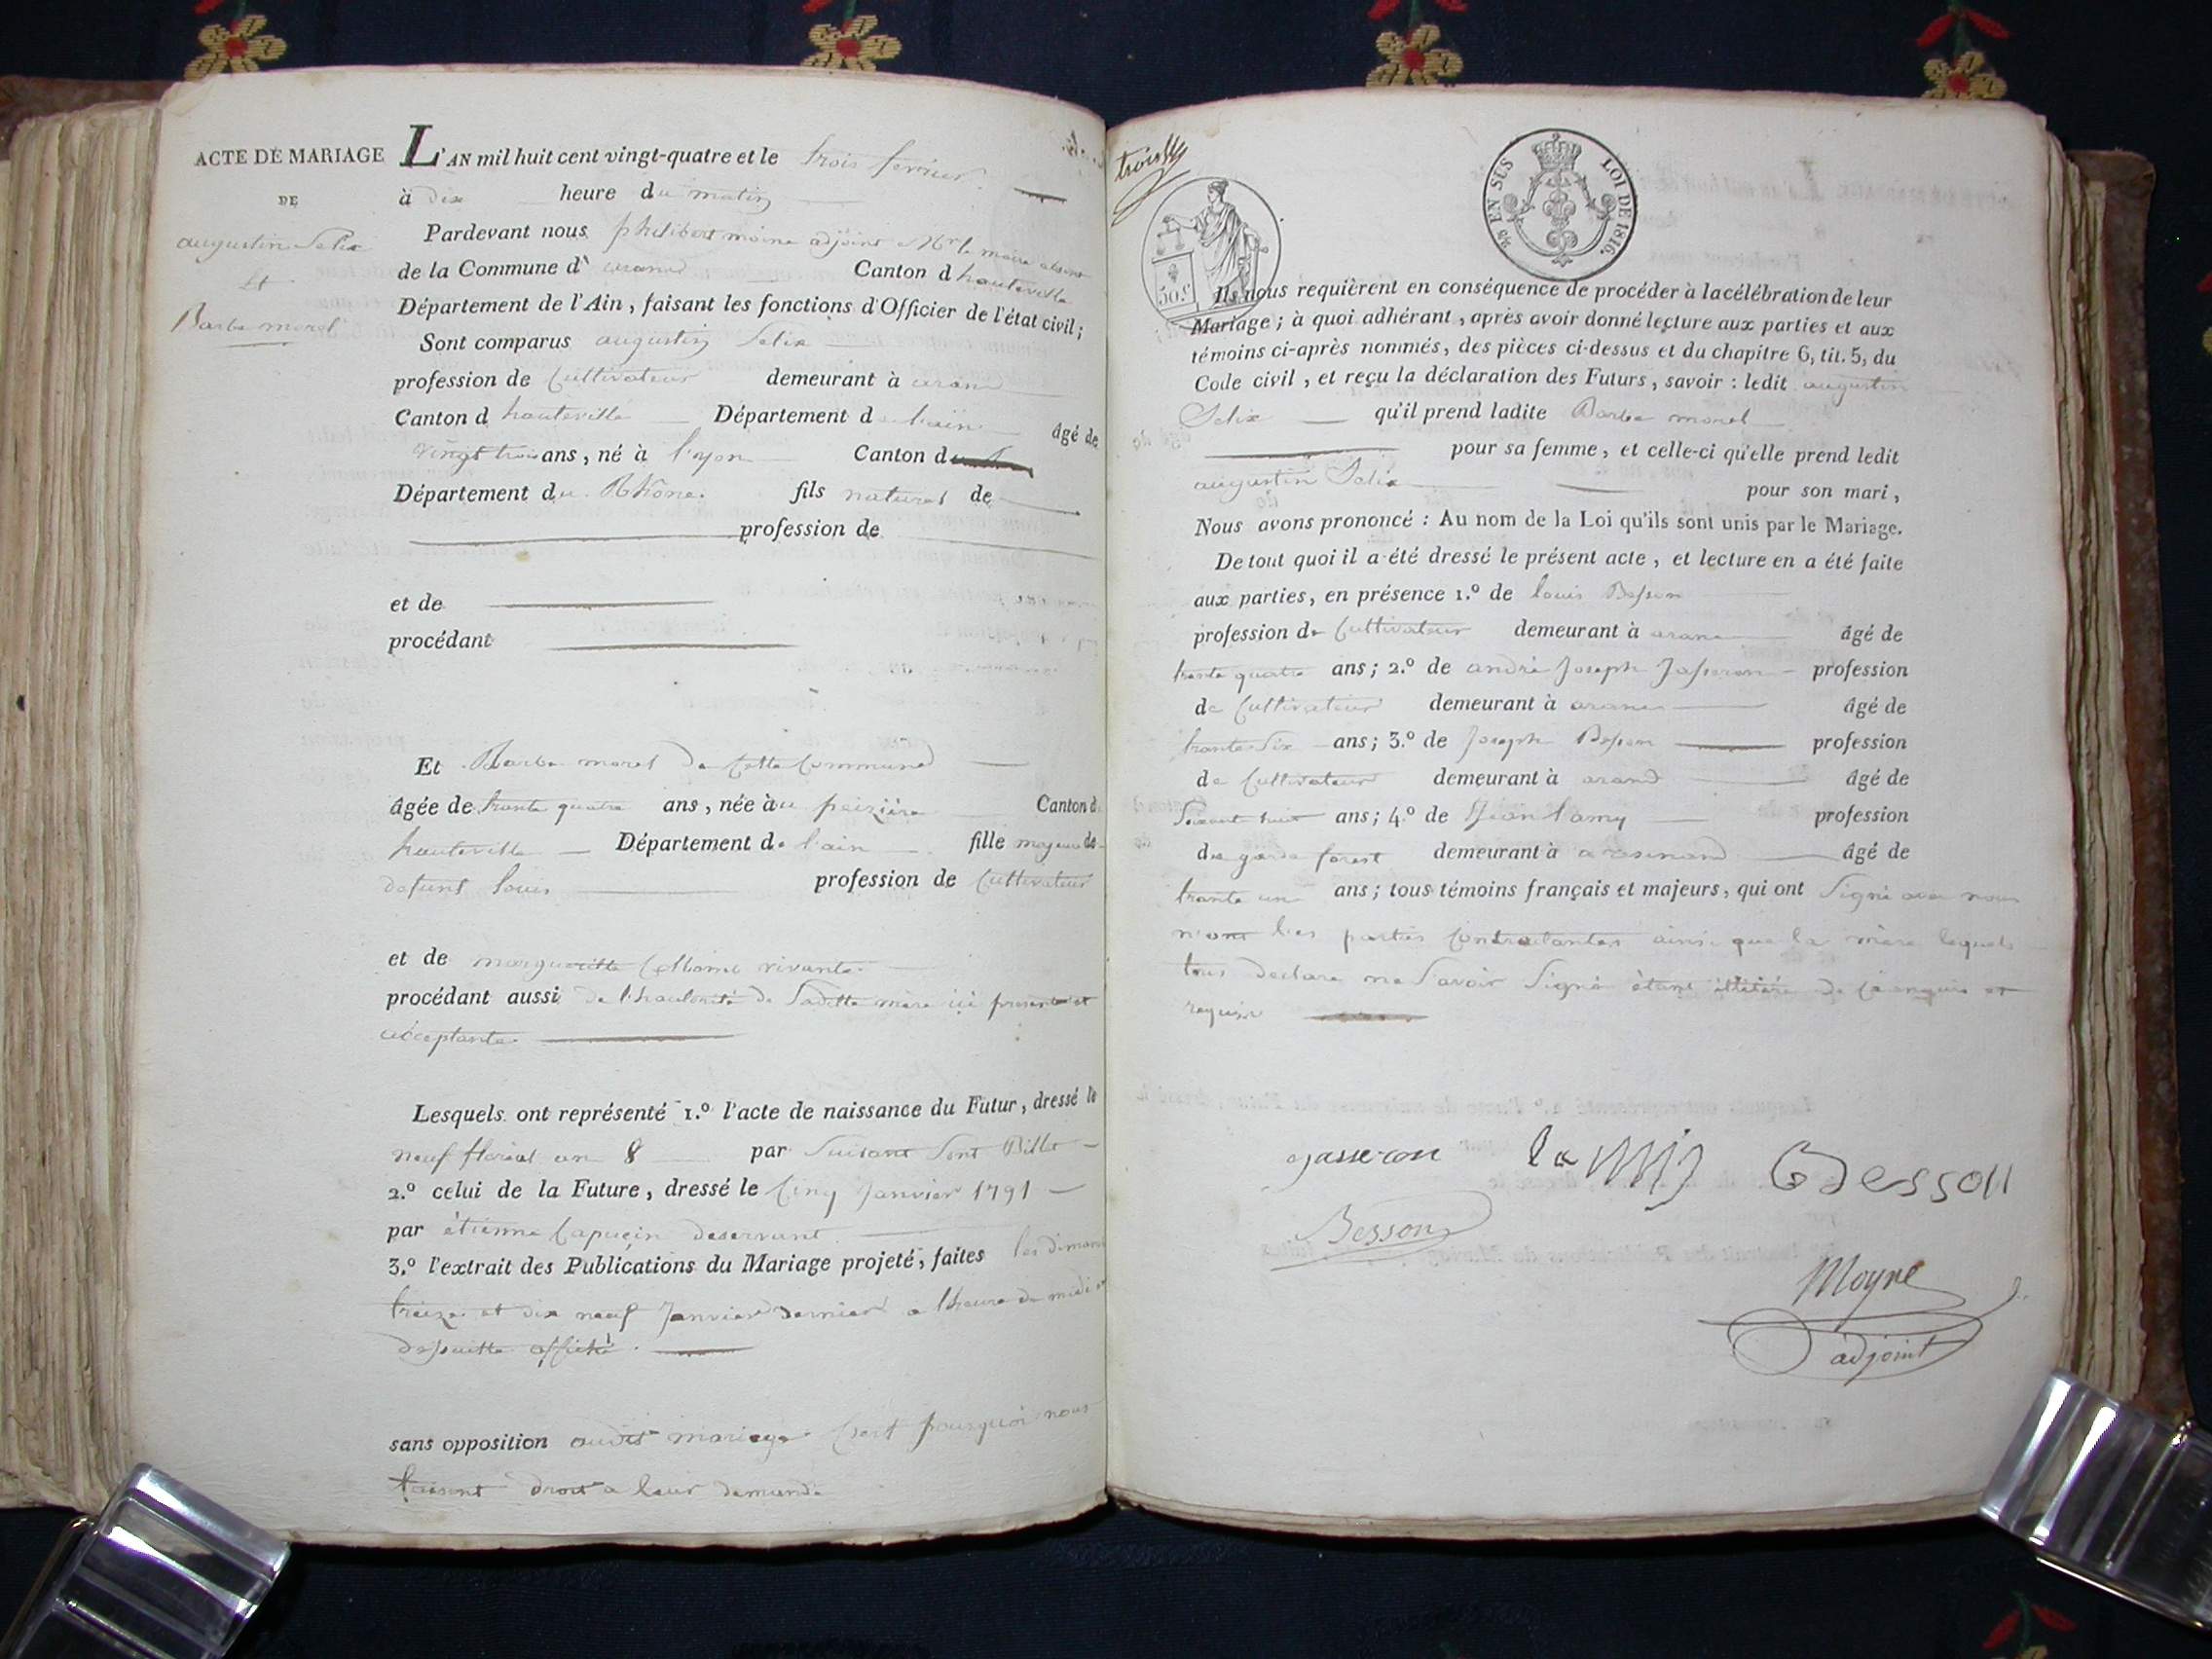 ACTE DE MARIAGE
DE
augustin Selix
et
Barbe morel
L'AN mil huit cent vingt-quatre et le trois fevrier
à dix heure du matin
Pardevant nous philibert moine adjoint Mr le maire absent
de la Commune d' arand Canton d hauteville
Département de l'Ain, faisant les fonctions d'Officier de l'état civil;
Sont comparus augustin Selix
profession de Cultivateur demeurant à arand
Canton d hauteville Département de l'ain âgé de
vingt trois ans, né à l'yon Canton d
Département du Rhone. fils naturel de
profession de
et de
procédant
Et Barbe morel de cette Commune
âgée de trante quatre ans, née au peizière Canton d
hauteville Département de l'ain fille majeure de
defunt louis profession de Cultivateur
et de margueritte vivante
procédant aussi de l'hautorité de Saditte mère ici presente et
acceptante
Lesquels ont représenté 1.º l'acte de naissance du Futur, dressé le
neuf floreal an 8 par Suivant Sont Billet
2.º celui de la Future, dressé le Cinq Janvier 1791
par étienne Capucin deservant
3.º l'extrait des Publications du Mariage projeté, faites les dimans
treize et dix neuf Janvier dernier a l'heure de midi et
desuitte affiché.
sans opposition audit mariage C'est pourquoi nous
faisant droit a leur demande
trois
50.c
EN SUS LOI DE 1816.
Ils nous requièrent en conséquence de procéder à la célébration de leur
Mariage; à quoi adhérant, après avoir donné lecture aux parties et aux
témoins ci-après nommés, des pièces ci-dessus et du chapitre 6, tit. 5, du
Code civil, et reçu la déclaration des Futurs, savoir: ledit augustin
Selix qu'il prend ladite Barbe morel
pour sa femme, et celle-ci qu'elle prend ledit
augustin Selix pour son mari,
Nous avons prononcé: Au nom de la Loi qu'ils sont unis par le Mariage.
De tout quoi il a été dressé le présent acte, et lecture en a été faite
aux parties, en présence 1.º de louis Besson
profession de Cultivateur demeurant à arand âgé de
trante quatre ans; 2.º de andré Joseph Jasseron profession
de Cultivateur demeurant à arand âgé de
trante Six ans; 3.º de Joseph Besson profession
de Cultivateur demeurant à arand âgé de
Soixante huit ans; 4.º de Jean lamy profession
de garde forest demeurant à âgé de
trante un ans; tous témoins français et majeurs, qui ont Signé avec nous
n'ont les parties Contractantes ainsi que la mère lequels
tous declare ne Savoir Signé étant illitéré de ce enquis et
requis
jasseron lamy Besson
Besson
Moyne
adjoint